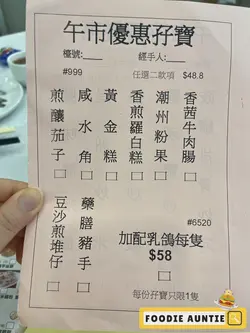 午市優惠孖寶
檯號:____ 經手人:____
#999 任選二款項 $48.8
香茜牛肉腸 □
潮州粉果 □
香煎蘿白糕 □
黃金糕 □
咸水角 □
煎釀茄子 □
藥膳豬手 □
豆沙煎堆仔 □
#6520
加配乳鴿每隻
$58
□
每份孖寶只限1隻
FOODIE AUNTIE